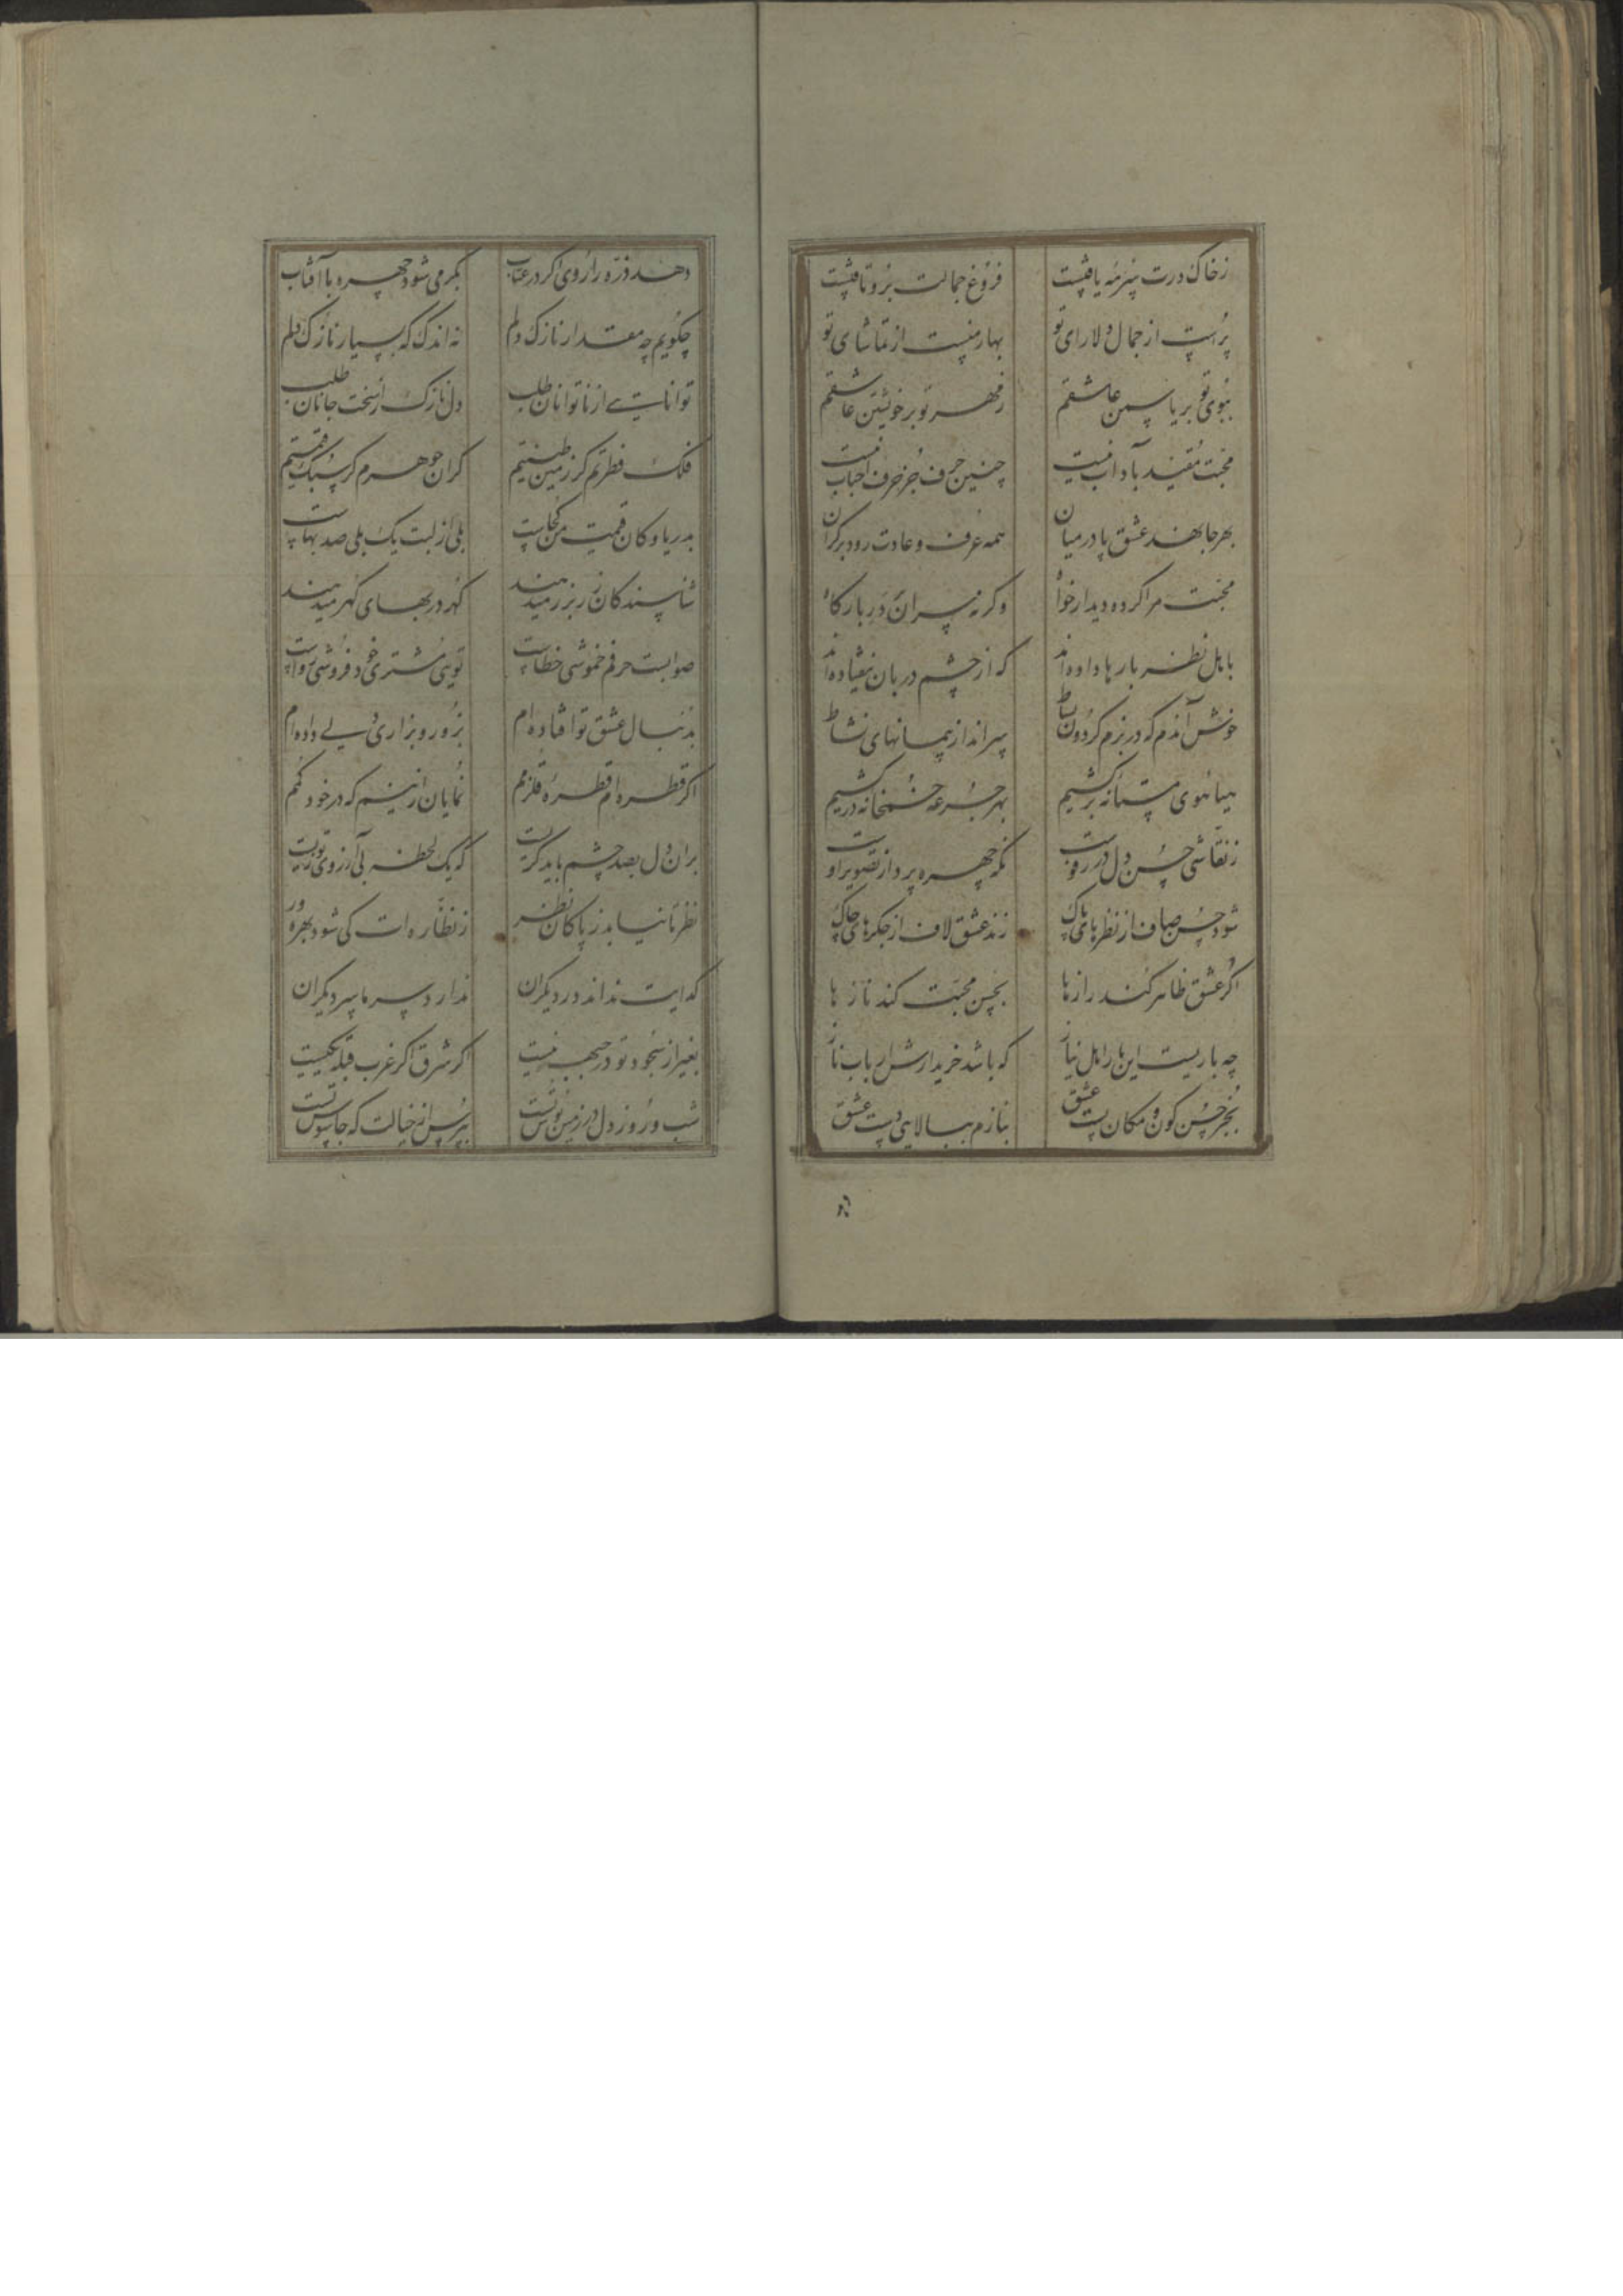 زخاک درت سرمه یافتست فروغ جمالت بروتافتست
پرست از جمال دلارای تو بهارمنست از تماشای تو
ببوی تو بریاسمن عاشقم زمهر تو برخویشتن عاشقم
محبت مقید بآداب نیست چنین حرف جز حرف احباب نیست
بهرجا نهد عشق پا درمیان همه عرف وعادت رود برکران
محبت مرا کرده دیدار خواه وکرنه سران در بارکاه
باهل نظر بارها داده‌اند که از چشم دربان نیفتاده‌اند
خوش آندم که در بزم کردون بساط سراندازپیمانهای نشاط
هیاهوی مستانه برکشیم بهر جرعه خمخانه درکشیم
زنقاشی حسن دل در رفوست نکه چهره پرداز تصویر اوست
شود حسن صاف از نظرهای پاک زند عشق لاف از جکرهای چاک
اکر عشق ظاهر کند رازها بحسن محبت کند نازها
چه باریست این بار اهل نیاز که باشد خریدارش ارباب ناز
بجز حسن کون و مکان پست عشق بنازم ببالایی دست عشق
دهد ذره را روی اکر در عتاب بکرمی شود چهره با آفتاب
چکویم چه مقدار نازک دلم نه اندک که بسیار نازک دلم
توانایی از ناتوانان طلب دل نازک از سخت جانان طلب
فلک فطرتم کر زمین طینتم کران جوهرم کر سبک قیمتم
بدریا وکان قیمت من کجاست بلی از لبت یک بلی صد بهاست
شناسندکان زر بزر میدهند کهر در بهای کهر میدهند
صوابست حرفم خموشی خطاست تویی مشتری خود فروشی رواست
بدنبال عشق تو افتاده‌ام بزور و بزاری دلی داده‌ام
اکر قطره‌ام قطره قلزمم نمایان ازینم که در خود کمم
بران دل بصد چشم باید کریست که یک لحظه بی آرزوی تو زیست
نظر تا نیابد ز پاکان نظر زنظاره‌ات کی شود بهره‌ور
کدایت نداند در دیکران ندارد سر ما سر دیکران
بغیر از سجود تو در جبهه نیست اکر شرق اکر غرب قبله یکیست
شب و روز دل در زمین بوس تست بپرس از خیالت که جاسوس تست